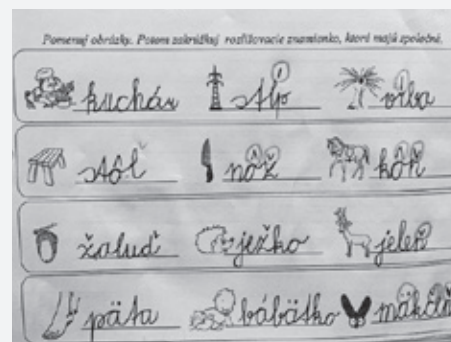 Pomenuj obrázky. Potom zakrúžkuj rozlišovacie znamienko, ktoré majú spoločné.
kuchár stĺp vŕba
stôl nôž kôň
žaluď ježko jeleň
päta bábätko